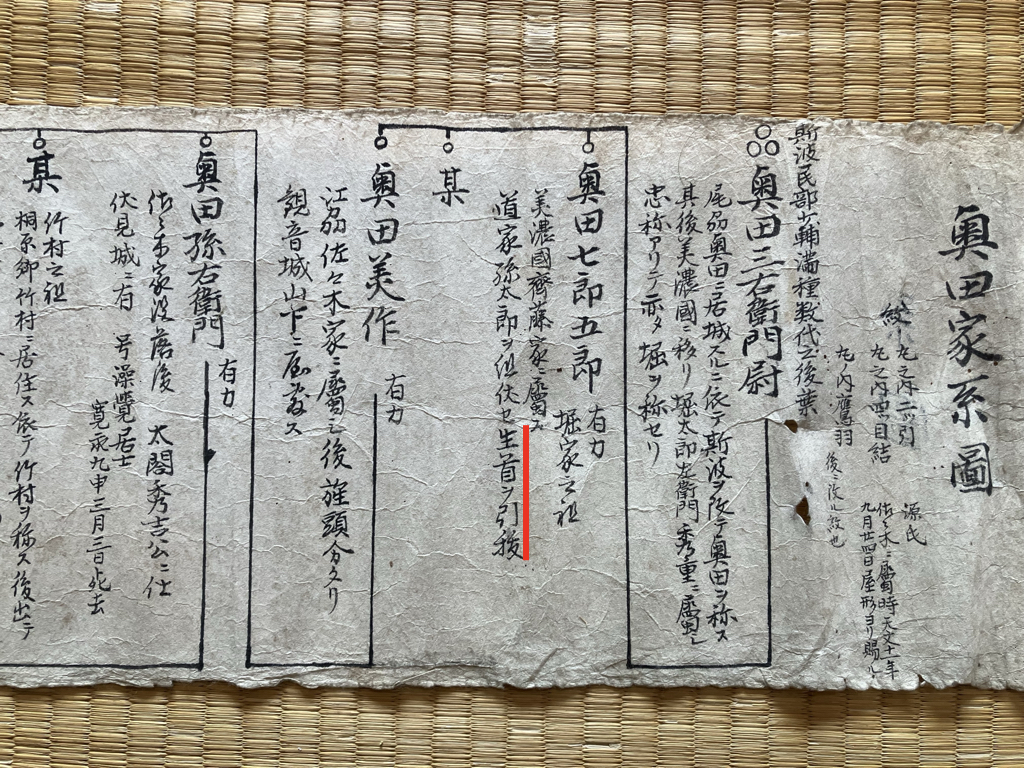 奥田家系圖
紋
丸之内二ツ引
丸之内四ツ目結
丸ノ内鷹羽
後ニ改ル紋也
源氏
佐々木ニ屬時天文十年
九月廿四日屋形ヨリ賜ル
斯波民部少輔満種数代之後葉
奥田三右衛門尉
尾刕奥田ニ居城スルニ依テ斯波ヲ改テ奥田ヲ称ス
其後美濃國ニ移リ堀太郎左衛門秀重ニ屬シ
忠称アリテ亦タ堀ヲ称セリ
奥田七郎五郎
有力
堀家之祖
美濃國齊藤家ニ屬ス
道家孫太郎ヲ组伏セ生首ヲ引抜
某
奥田美作
有力
江刕佐々木家ニ屬シ後旌頭分タリ
観音城山下ニ居
奥田孫右衛門
有力
佐々木家没落後 太閤秀吉公ニ仕
伏見城ニ有 号澡覺居士
寛永九申三月三日死去
某
竹村之祖
桐原郷竹村ニ居住ス依テ竹村ヲ称ス後出テ